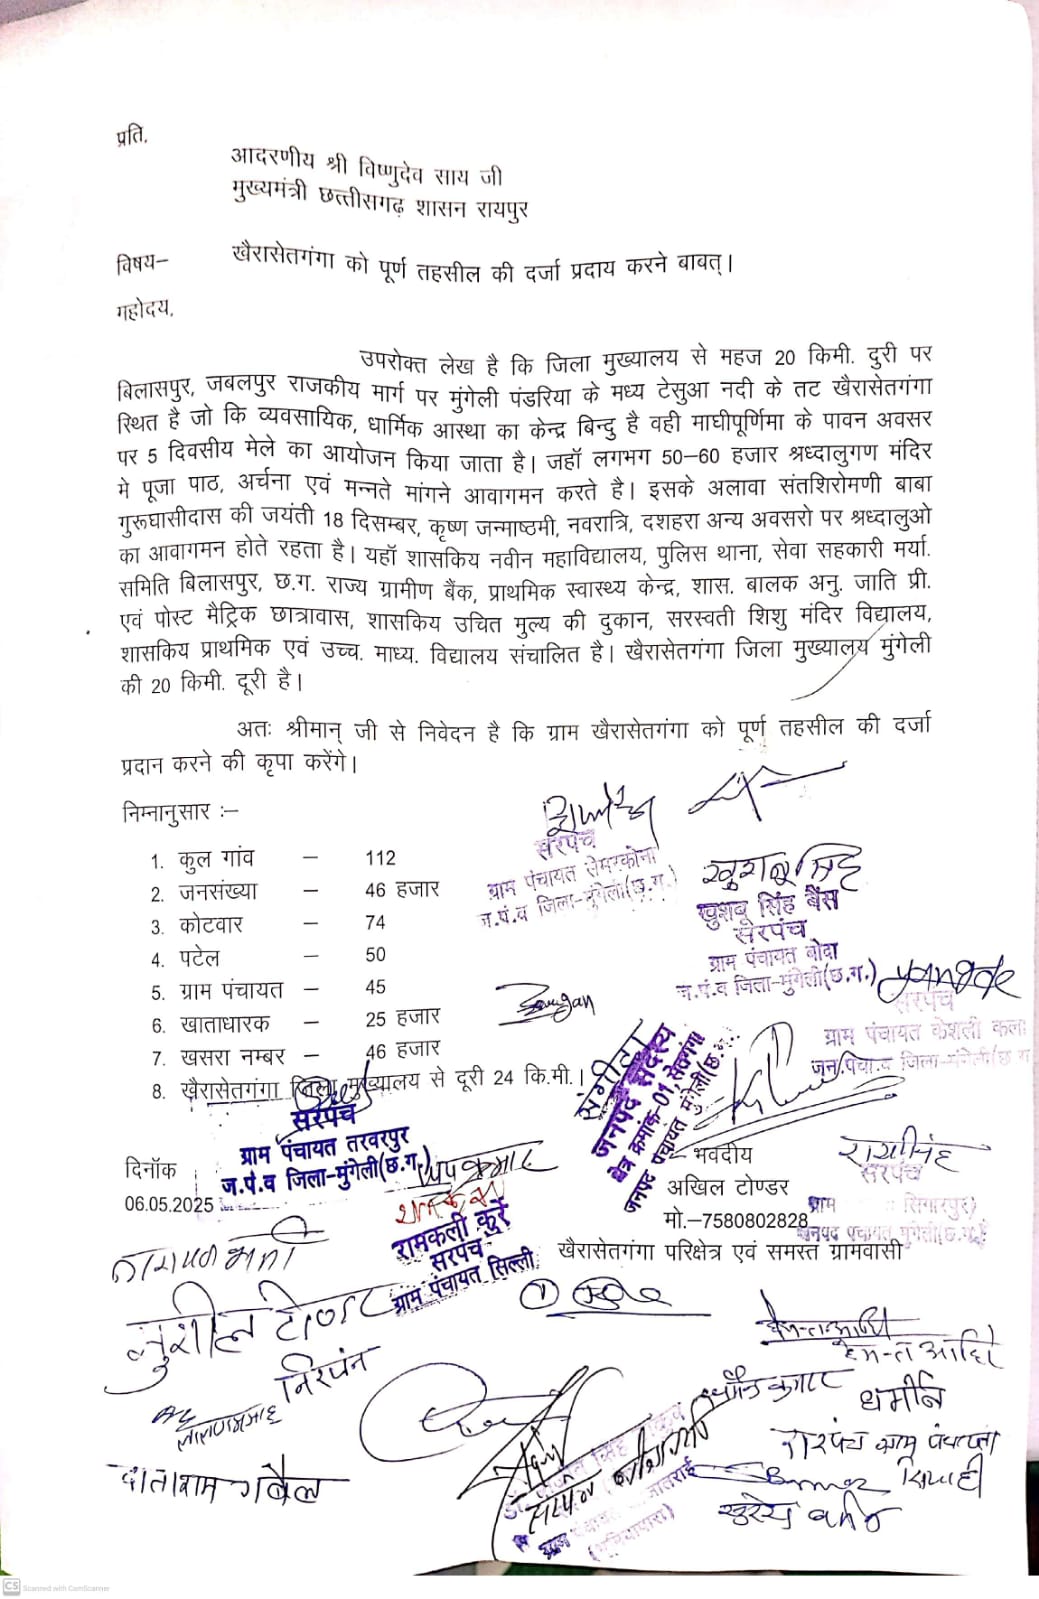 प्रति,
आदरणीय श्री विष्णुदेव साय जी
मुख्यमंत्री छत्तीसगढ़ शासन रायपुर
विषय– खैरासेतगंगा को पूर्ण तहसील की दर्जा प्रदाय करने बाबत्।
महोदय,
उपरोक्त लेख है कि जिला मुख्यालय से महज 20 किमी. दुरी पर
बिलासपुर, जबलपुर राजकीय मार्ग पर मुंगेली पंडरिया के मध्य टेसुआ नदी के तट खैरासेतगंगा
स्थित है जो कि व्यवसायिक, धार्मिक आस्था का केन्द्र बिन्दु है वही माघीपूर्णिमा के पावन अवसर
पर 5 दिवसीय मेले का आयोजन किया जाता है। जहॉ लगभग 50–60 हजार श्रध्दालुगण मंदिर
मे पूजा पाठ, अर्चना एवं मन्नते मांगने आवागमन करते है। इसके अलावा संतशिरोमणी बाबा
गुरूघासीदास की जयंती 18 दिसम्बर, कृष्ण जन्माष्ठमी, नवरात्रि, दशहरा अन्य अवसरो पर श्रध्दालुओ
का आवागमन होते रहता है। यहॉ शासकिय नवीन महाविद्यालय, पुलिस थाना, सेवा सहकारी मर्या.
समिति बिलासपुर, छ.ग. राज्य ग्रामीण बैंक, प्राथमिक स्वास्थ्य केन्द्र, शास. बालक अनु. जाति प्री.
एवं पोस्ट मैट्रिक छात्रावास, शासकिय उचित मुल्य की दुकान, सरस्वती शिशु मंदिर विद्यालय,
शासकिय प्राथमिक एवं उच्च. माध्य. विद्यालय संचालित है। खैरासेतगंगा जिला मुख्यालय मुंगेली
की 20 किमी. दूरी है।
अतः श्रीमान् जी से निवेदन है कि ग्राम खैरासेतगंगा को पूर्ण तहसील की दर्जा
प्रदान करने की कृपा करेंगे।
निम्नानुसार :–
1. कुल गांव – 112
2. जनसंख्या – 46 हजार
3. कोटवार – 74
4. पटेल – 50
5. ग्राम पंचायत – 45
6. खाताधारक – 25 हजार
7. खसरा नम्बर – 46 हजार
8. खैरासेतगंगा जिला मुख्यालय से दूरी 24 कि.मी.।
सरपंच
ग्राम पंचायत सेमरकोना
ज.पं.व जिला-मुंगेली(छ.ग.)
खुशबू सिंह
खुशबू सिंह बैस
सरपंच
ग्राम पंचायत बोदा
ज.पं.व जिला-मुंगेली(छ.ग.)
सरपंच
ग्राम पंचायत केशली कला
जन.पंचा.व जिला-मुंगेली(छ ग
संगीता
जनपद सदस्य
क्षेत्र क्रमांक-01, सेतगंगा
जनपद पंचायत मुंगेली(छ.ग.
सरपंच
ग्राम पंचायत तरवरपुर
ज.पं.व जिला-मुंगेली(छ.ग.)
दिनॉक
06.05.2025
भवदीय
अखिल टोण्डर
मो.–7580802828
खैरासेतगंगा परिक्षेत्र एवं समस्त ग्रामवासी
सरपंच
ग्राम
सिगारपुर)
जनपद पंचायत मुंगेली(छ.ग.)
रामकली कुर्रे
सरपंच
ग्राम पंचायत सिल्ली
सुशील टोण्डर
निरंपन
हेमन्त
धर्मीन
सरपंच ग्राम पंचायत
दाताराम गबेल
सुरेश
CS Scanned with CamScanner